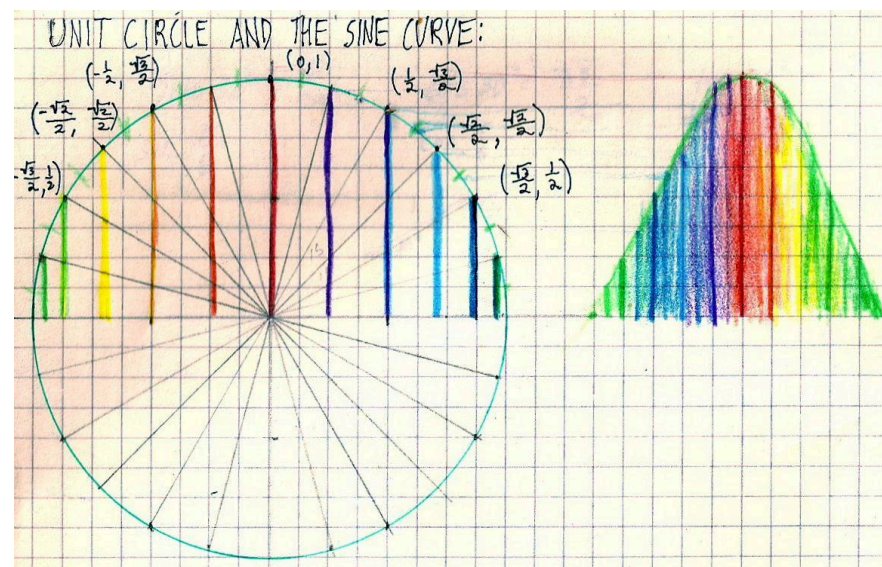 UNIT CIRCLE AND THE SINE CURVE:
(0,1)
(-1/2, √3/2)
(1/2, √3/2)
(-√2/2, √2/2)
(√2/2, √2/2)
-√3/2, 1/2)
(√3/2, 1/2)